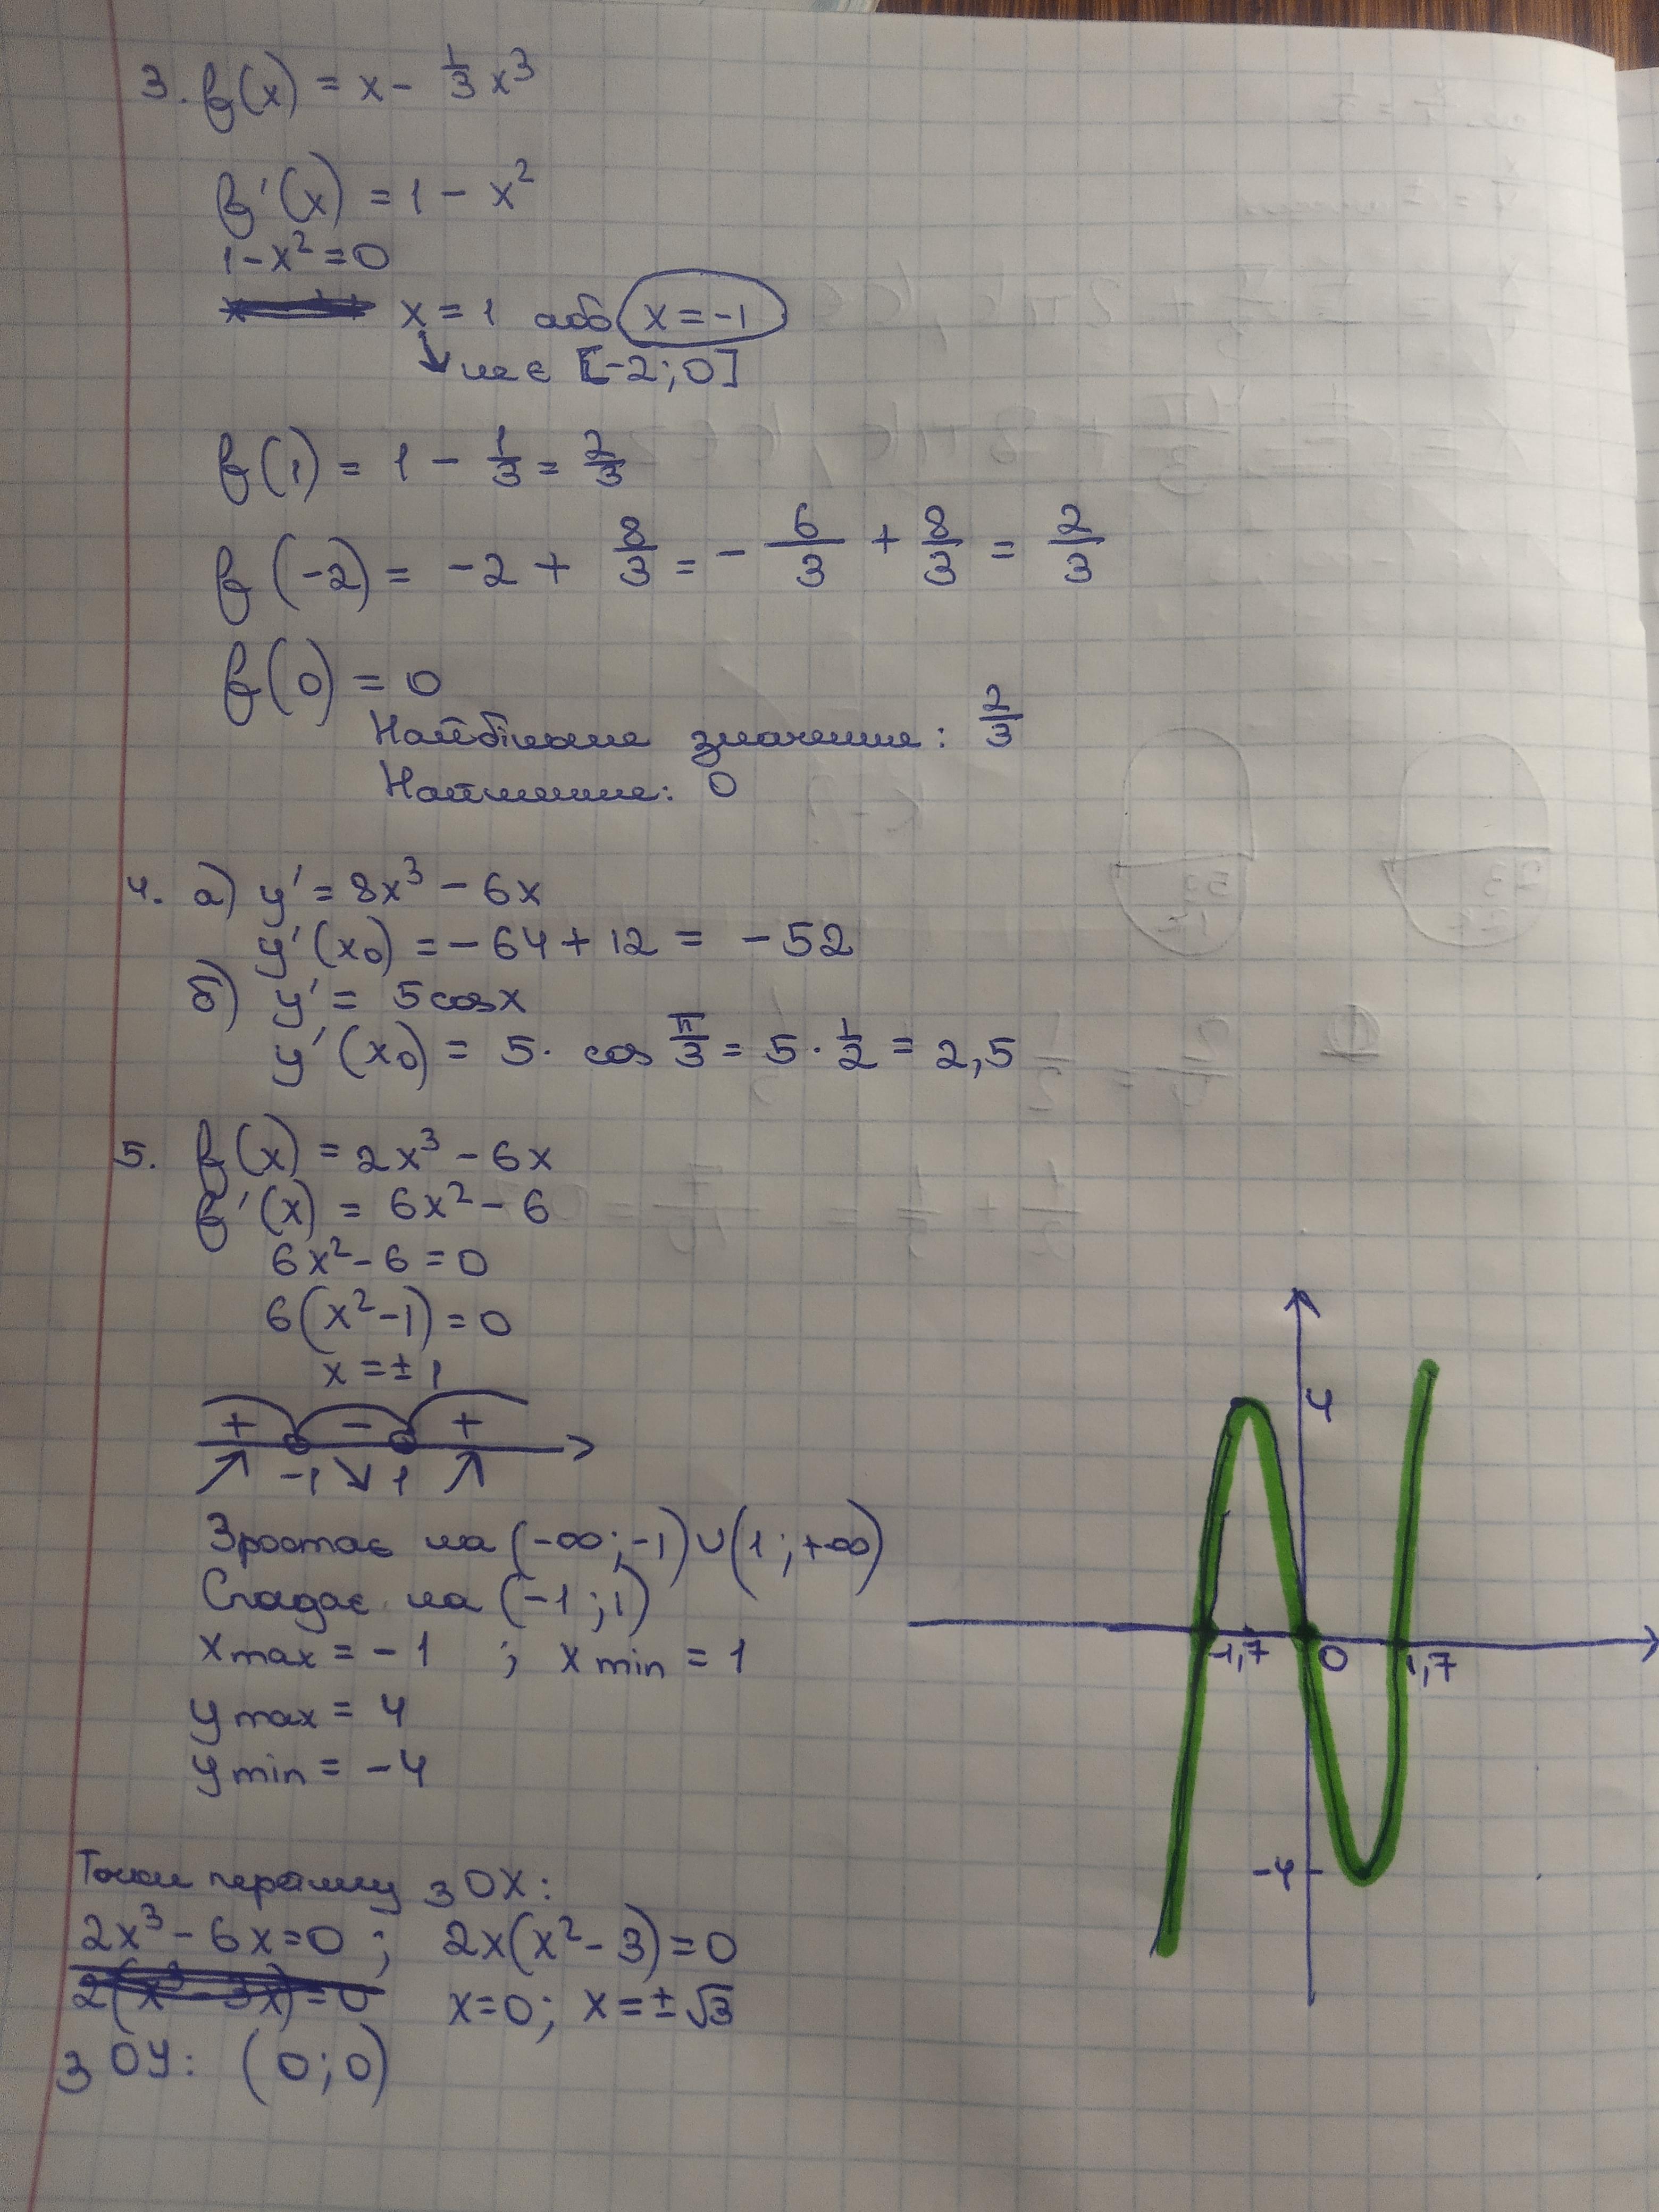 3. f(x) = x - 1/3 x³
f'(x) = 1 - x²
1 - x² = 0
x = 1 або x = -1
не є [-2; 0]
f(1) = 1 - 1/3 = 2/3
f(-2) = -2 + 8/3 = - 6/3 + 8/3 = 2/3
f(0) = 0
Найбільше значення: 2/3
Найменше: 0
4. а) y' = 8x³ - 6x
y'(x₀) = - 64 + 12 = - 52
б) y' = 5cosx
y'(x₀) = 5 · cos π/3 = 5 · 1/2 = 2,5
5. f(x) = 2x³ - 6x
f'(x) = 6x² - 6
6x² - 6 = 0
6(x² - 1) = 0
x = ± 1
+ - +
-1 1
Зростає на (-∞; -1) ∪ (1; +∞)
Спадає на (-1; 1)
x max = - 1 ; x min = 1
y max = 4
y min = - 4
4
-1,7 0 1,7
-4
Точки перетину з OX:
2x³ - 6x = 0 ; 2x(x² - 3) = 0
2(x³ - 3x) = 0 x = 0; x = ± √3
з OY: (0; 0)